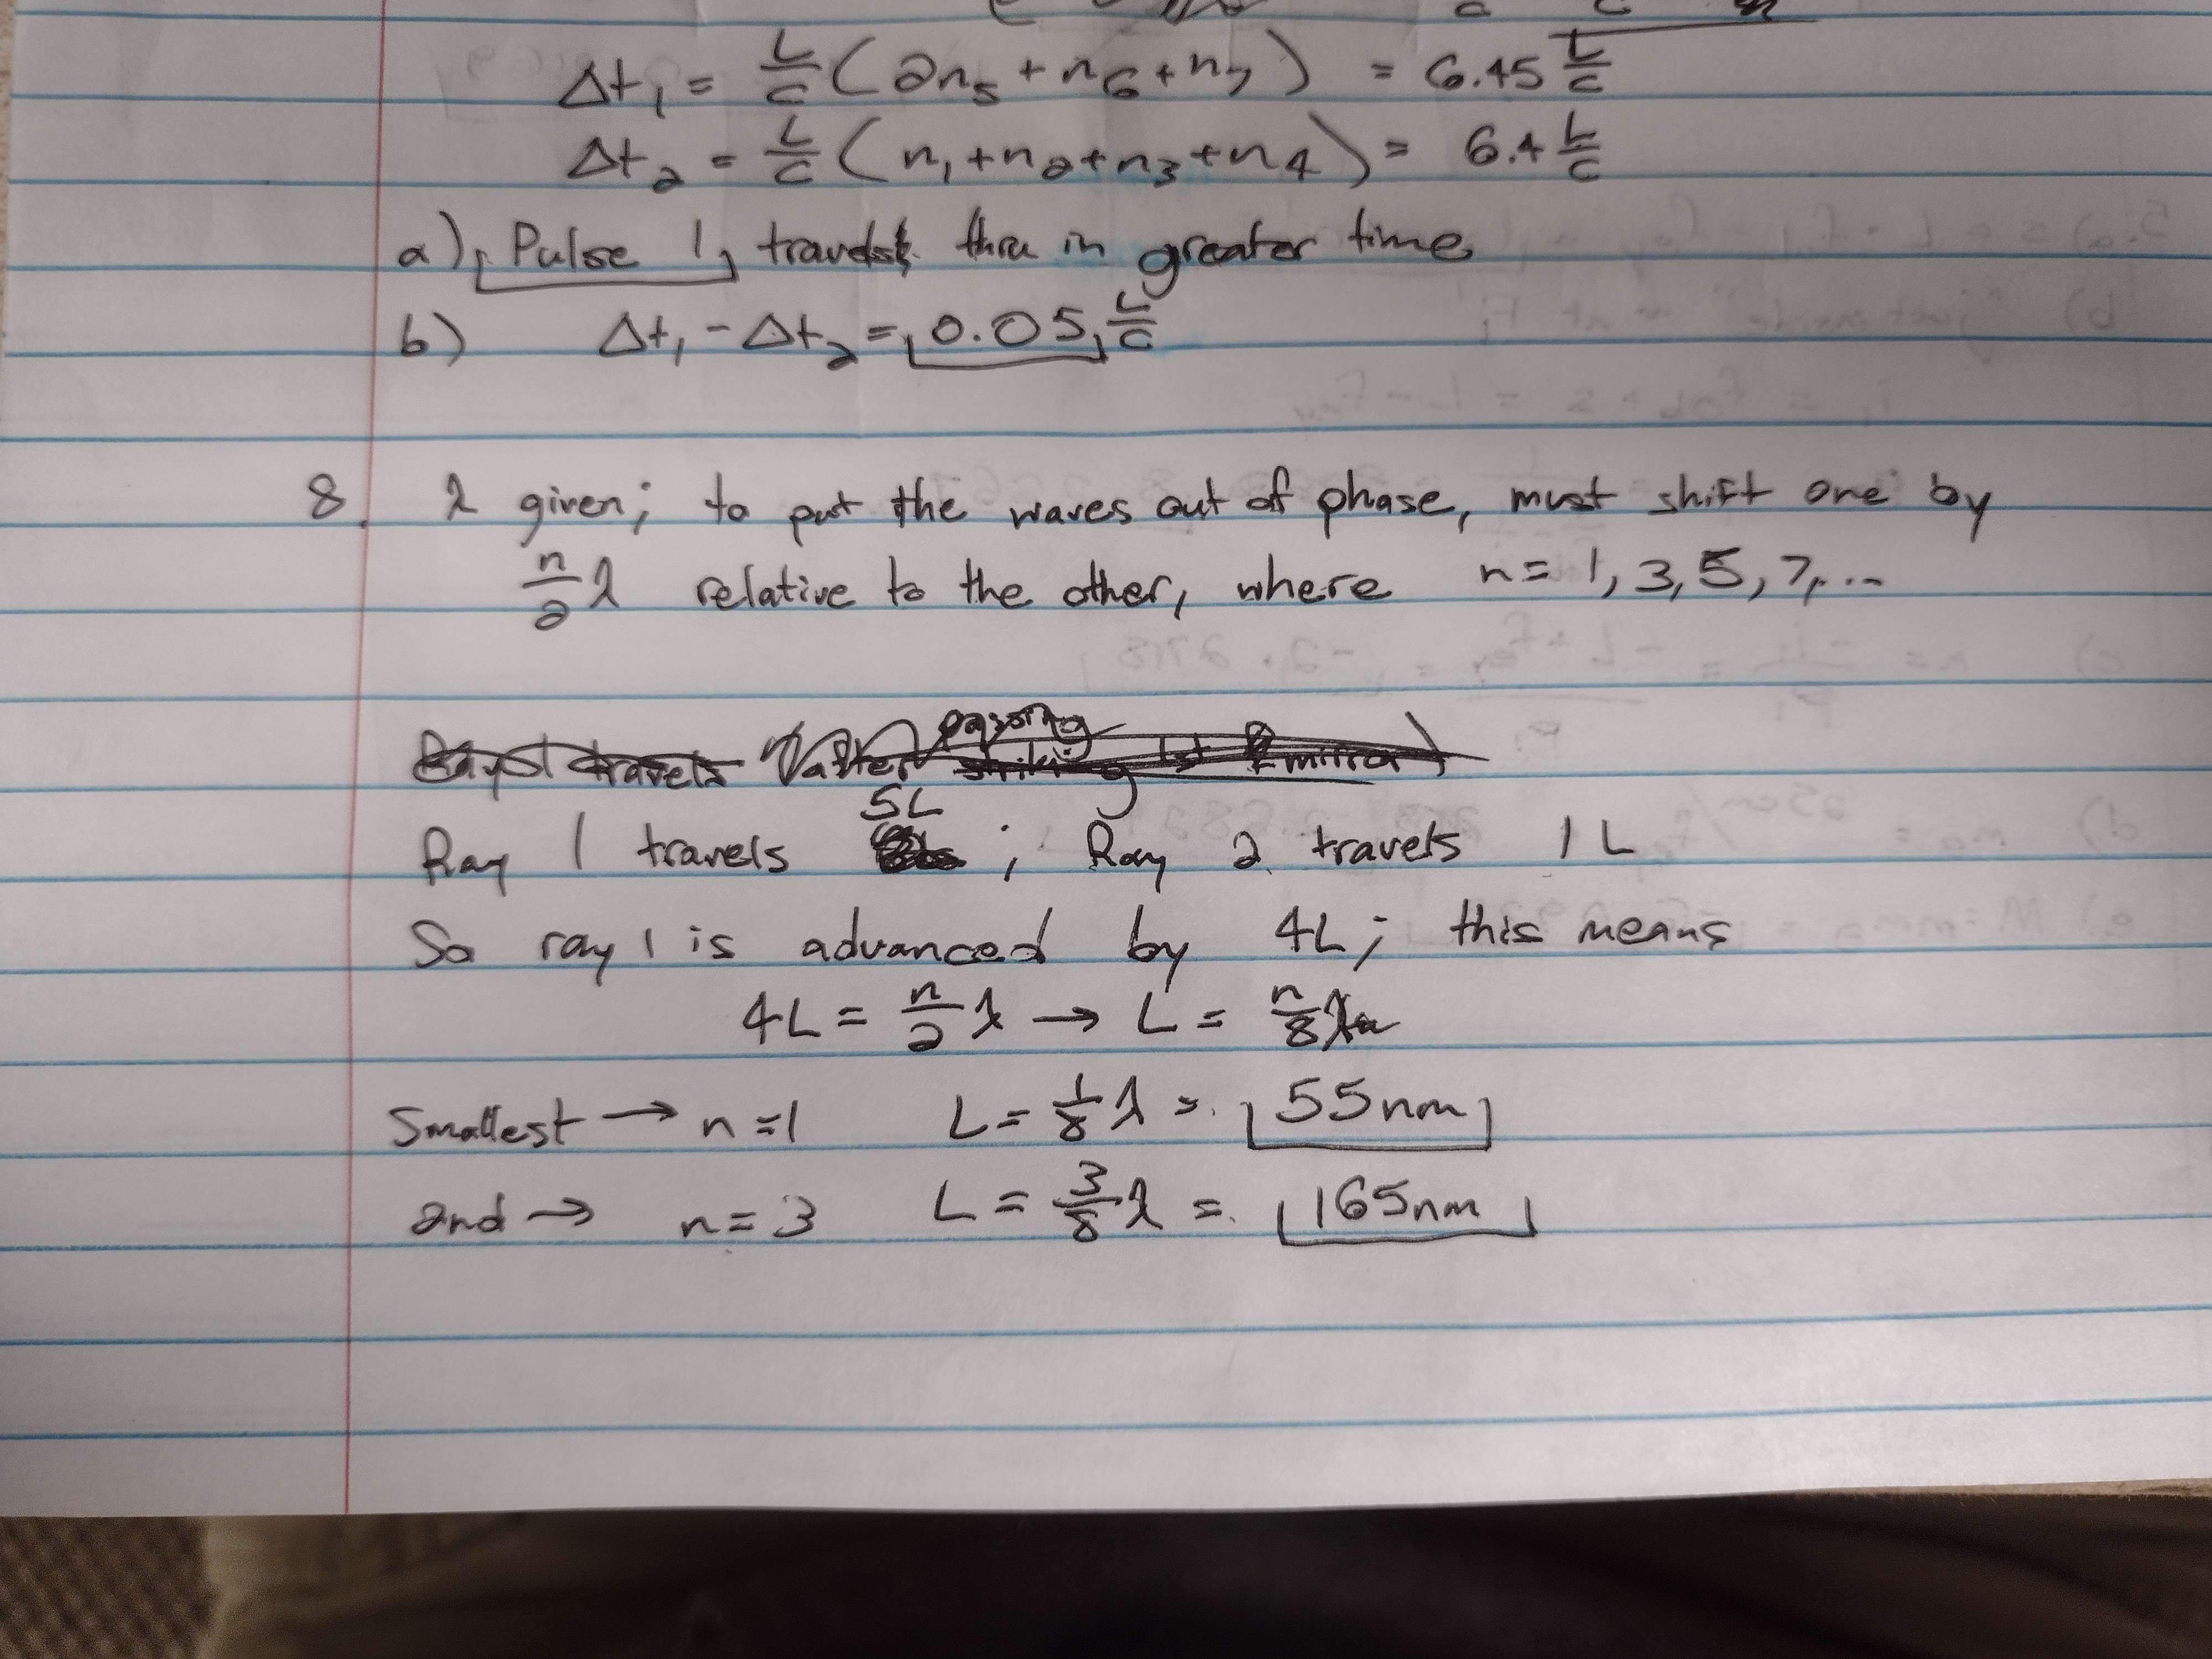 Δt₁ = L/c (2n₅ + n₆ + n₇) = 6.45 L/c
Δt₂ = L/c (n₁ + n₂ + n₃ + n₄) = 6.4 L/c
a) Pulse 1 travels thru in greater time
b) Δt₁ - Δt₂ = 0.05 L/c
8. λ given; to put the waves out of phase, must shift one by
n/2 λ relative to the other, where n = 1, 3, 5, 7, ...
passing
Ray 1 travels after striking 1st mirror
5L
Ray 1 travels ; Ray 2 travels 1L
So ray 1 is advanced by 4L; this means
4L = n/2 λ → L = n/8 λ
Smallest → n = 1 L = 1/8 λ = 55nm
2nd → n = 3 L = 3/8 λ = 165nm